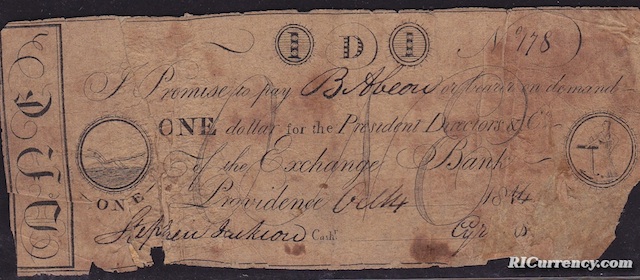 ONE
1 D 1 No 978
I Promise to pay or bearer on demand
ONE dollar for the President Directors & Co
of the Exchange Bank
ONE Providence 1814
Stephen Jackson Cashr.
RICurrency.com